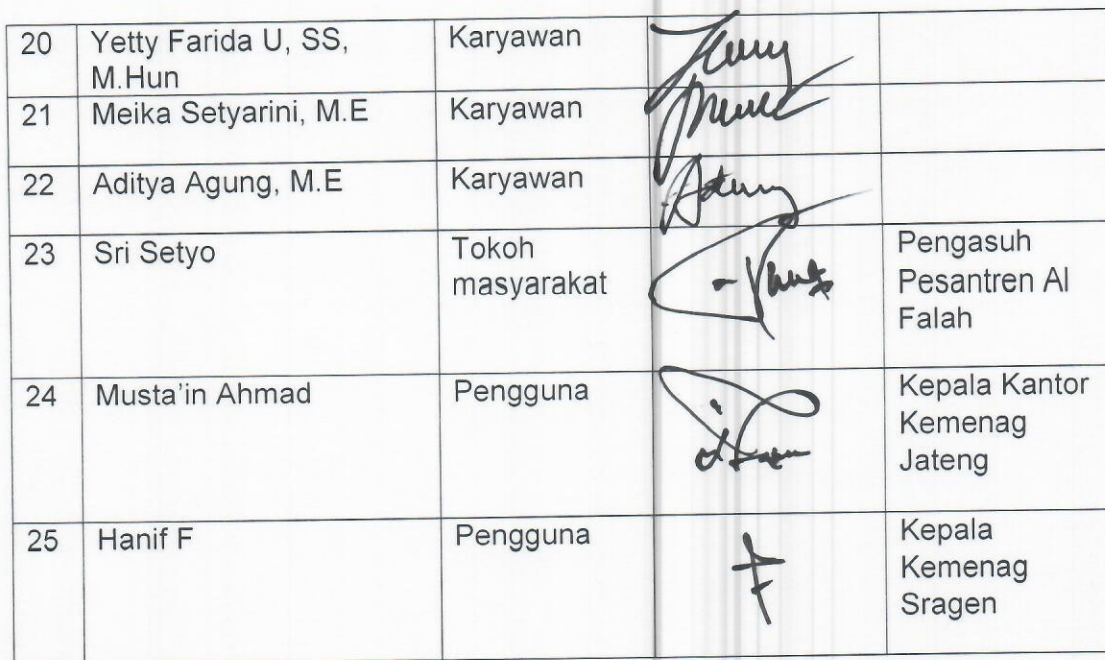 20 Yetty Farida U, SS, Karyawan
M.Hun
21 Meika Setyarini, M.E Karyawan
22 Aditya Agung, M.E Karyawan
23 Sri Setyo Tokoh masyarakat Pengasuh
Pesantren Al
Falah
24 Musta'in Ahmad Pengguna Kepala Kantor
Kemenag
Jateng
25 Hanif F Pengguna Kepala
Kemenag
Sragen